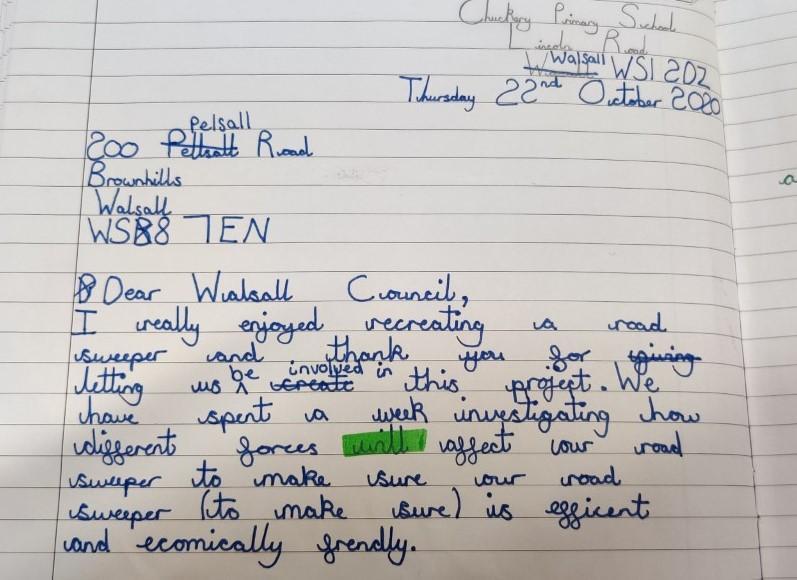 Chuckery Primary School
Lincoln Road
Walsall WS1 2DZ
Thursday 22nd October 2020
200 Pelsall Road
Brownhills
Walsall
WS8 7EN
Dear Walsall Council,
I really enjoyed recreating a road
sweeper and thank you for giving
letting us be create involved in this project. We
have spent a week investigating how
different forces will affect our road
sweeper to make sure our road
sweeper (to make sure) is efficent
and ecomically frendly.
a